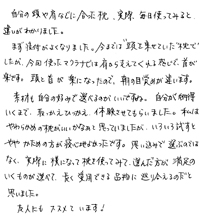 自分の頭や肩などに合った枕、実際、毎日使ってみると
違いがわかりました。
まず寝付がよくなりました。今までは"頭を乗せていた枕"でし
たが、今回使ったマクラナビは肩から支えてくれる感じで、首が
楽です。頭と首が楽になったので、朝の目覚めが違います。
素材も自分の好みで選べるのがいいですね。自分が納得
いくまで、取っかえひっかえ、体験させてもらいました。私は
やわらかめの枕がいいかなぁと思っていましたが、いろいろ試すと
やや かための方が寝心地よかったです。思い込みで選ぶのでは
なく、実際に横になって枕を使ってみて、選んだ方が満足の
いくものが選べて、長く実用できる品物に巡り合えるのだと
思いました。
友人にもススメています!